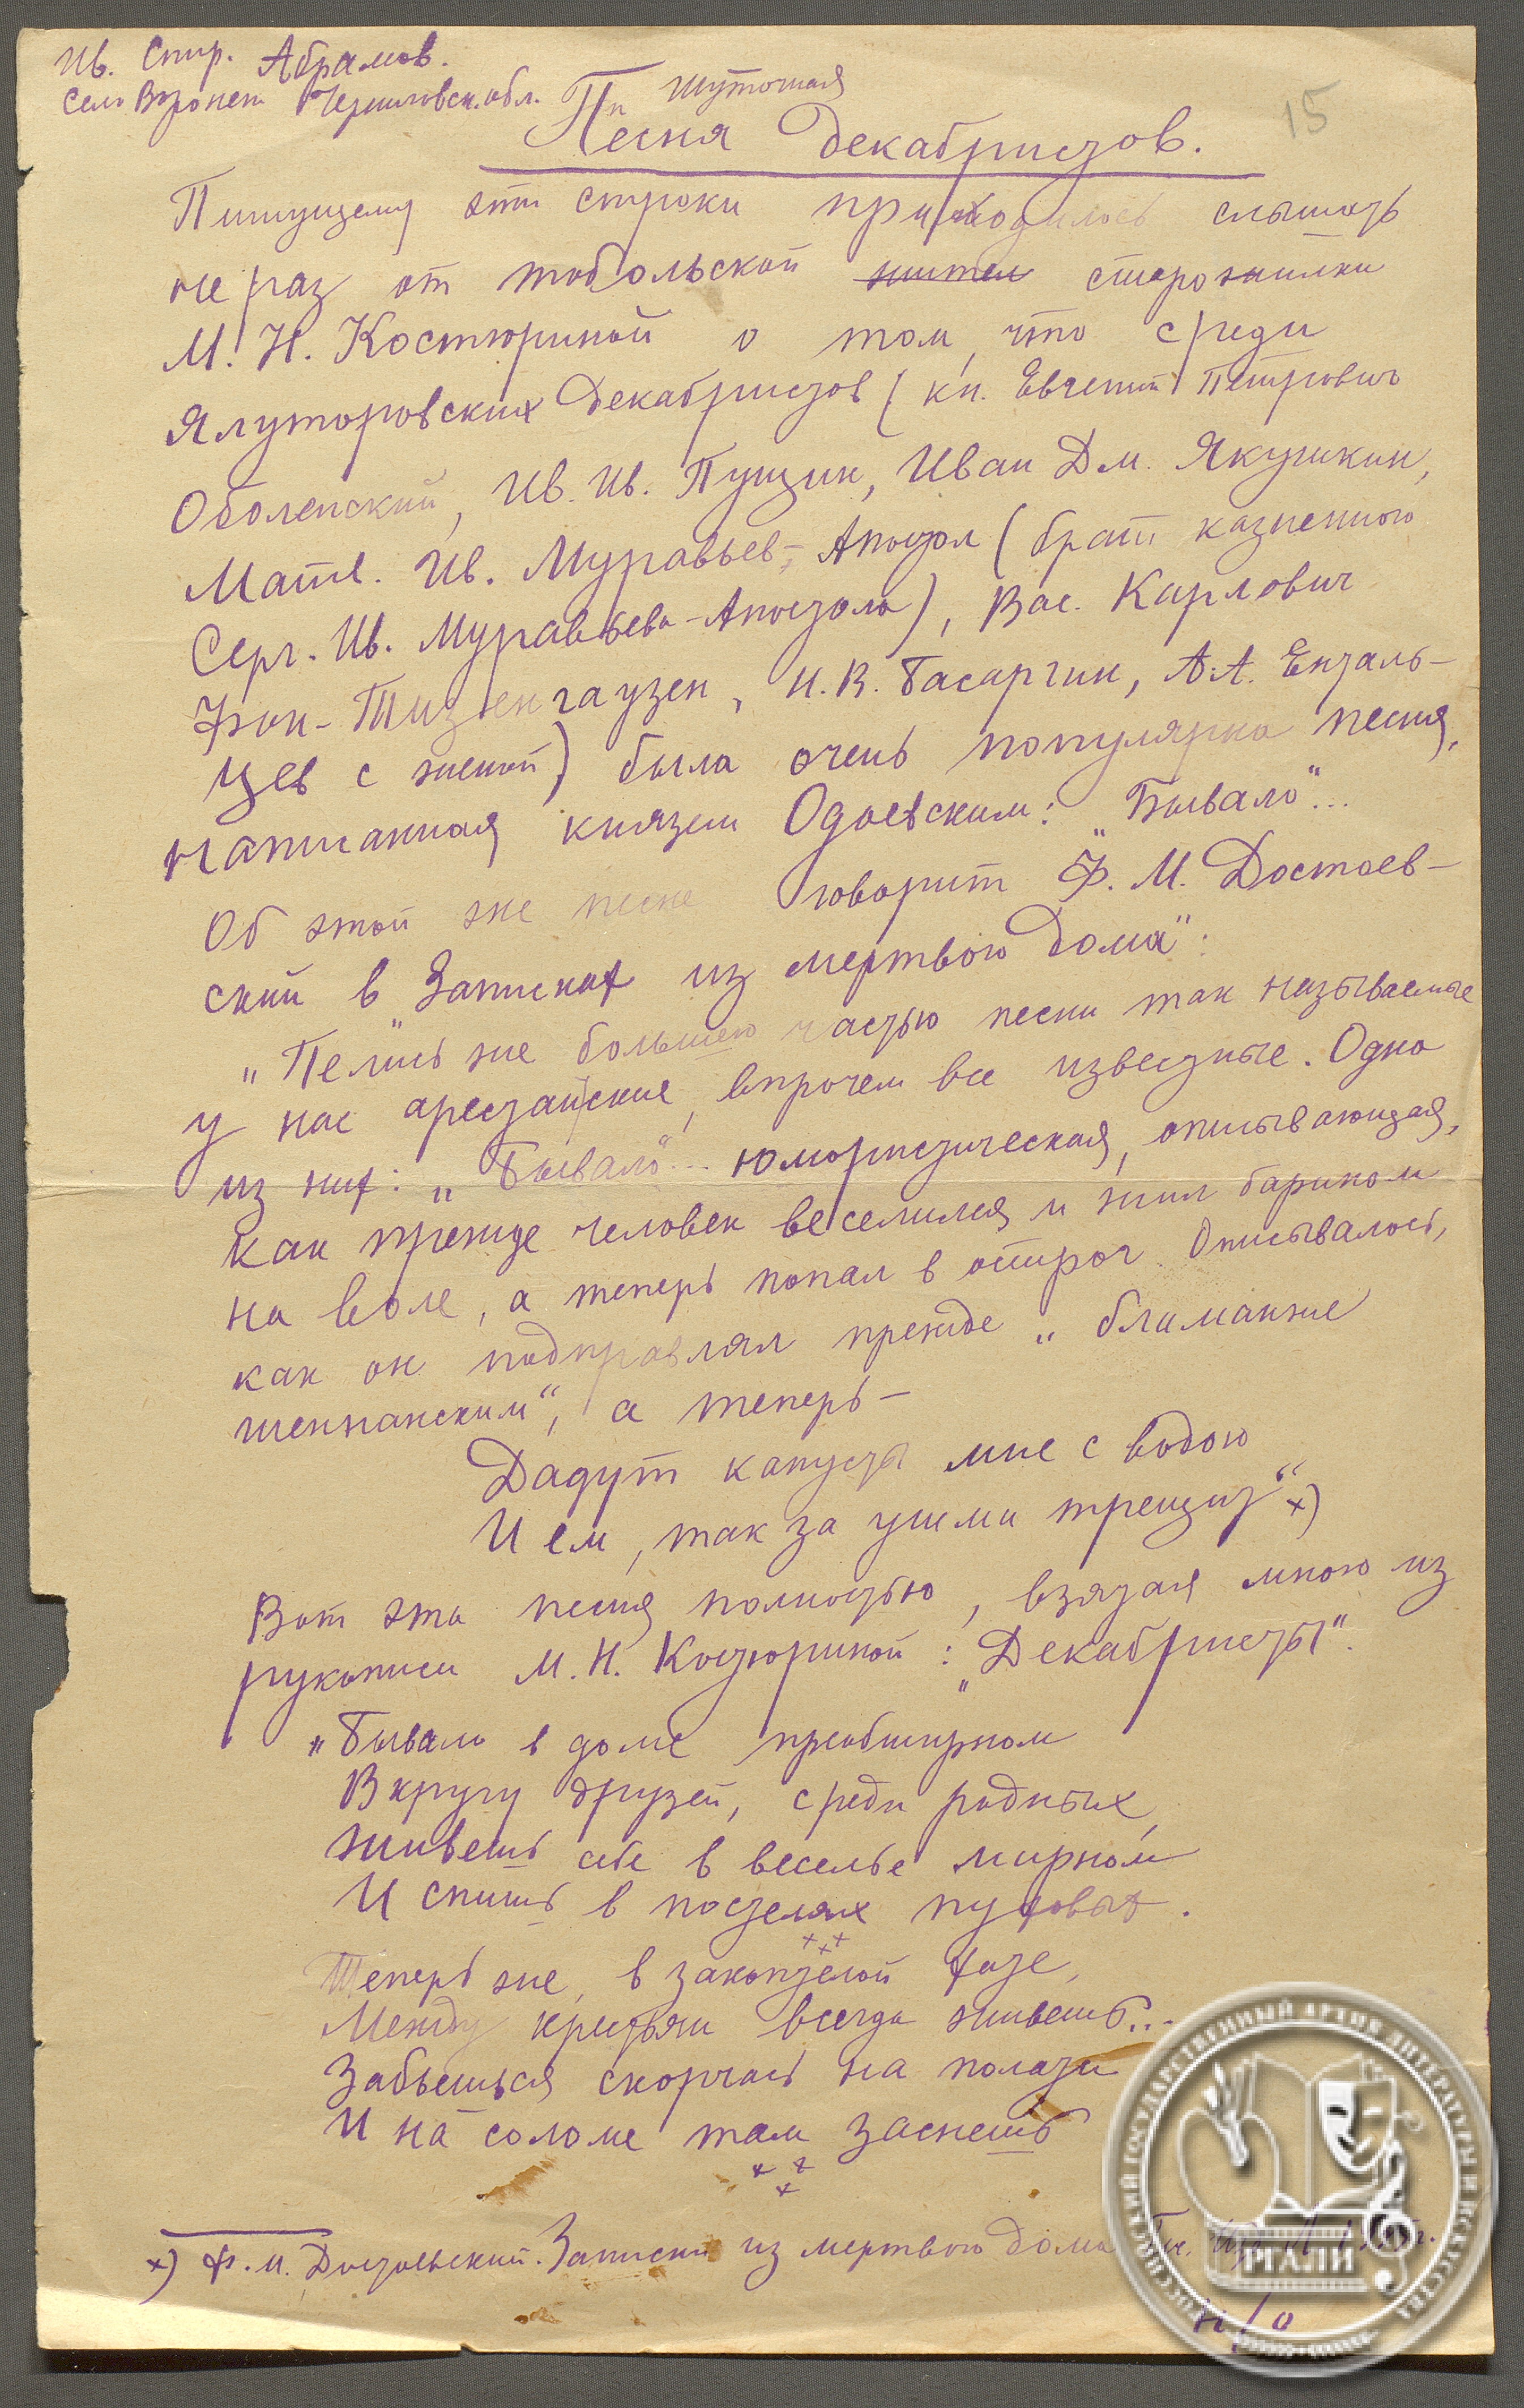 Ив. Спир. Абрамов.
Село Воронеж Черниговск. обл.
15
Шуточная
Песня декабристов.
Пишущему эти строки приходилось слышать
не раз от тобольской жител старожилки
М. Н. Костюриной о том, что среди
Ялуторовских декабристов (кн. Евгений Петрович
Оболенский, Ив. Ив. Пущин, Иван Дм. Якушкин,
Матв. Ив. Муравьев-Апостол (брат казненного
Серг. Ив. Муравьева-Апостола), Вас. Карлович
Фон-Тизенгаузен, Н. В. Басаргин, А. А. Енталь-
цев с женой) была очень популярна песня,
написанная князем Одоевским: "Бывало"...
Об этой же песне говорит Ф. М. Достоев-
ский в "Записках из мертвого дома":
"Пелись же большею частью песни так называемые
у нас арестантские, впрочем все известные. Одна
из них: "Бывало"... юмористическая, описывающая,
как прежде человек веселился и жил барином
на воле, а теперь попал в острог. Описывалось,
как он подправлял прежде "бламанже
шенпанским", а теперь –
Дадут капусты мне с водою
И ем, так за ушми трещит" х)
Вот эта песня полностью, взятая мною из
рукописи М. Н. Костюриной: "Декабристы".
"Бывало в доме преобширном
В кругу друзей, среди родных,
Живешь себе в веселье мирном
И спишь в постелях пуховых.
х х х
Теперь же, в закоптелой хате,
Между крестьян всегда живешь...
Забьешься скорчась на полати
И на соломе там заснешь
х х х
х) Ф. М. Достоевский. Записки из мертвого дома
н/о
РОССИЙСКИЙ ГОСУДАРСТВЕННЫЙ АРХИВ ЛИТЕРАТУРЫ И ИСКУССТВА
РГАЛИ